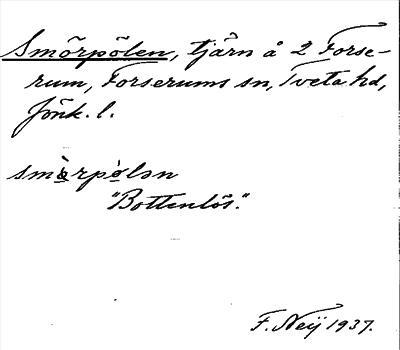 Smörpölen, tjärn å 2 Forse-
rum, Forserums sn, Tveta hd,
Jönk. l.
smö̀rpö̀lən
"Bottenlös".
F. Neij 1937.